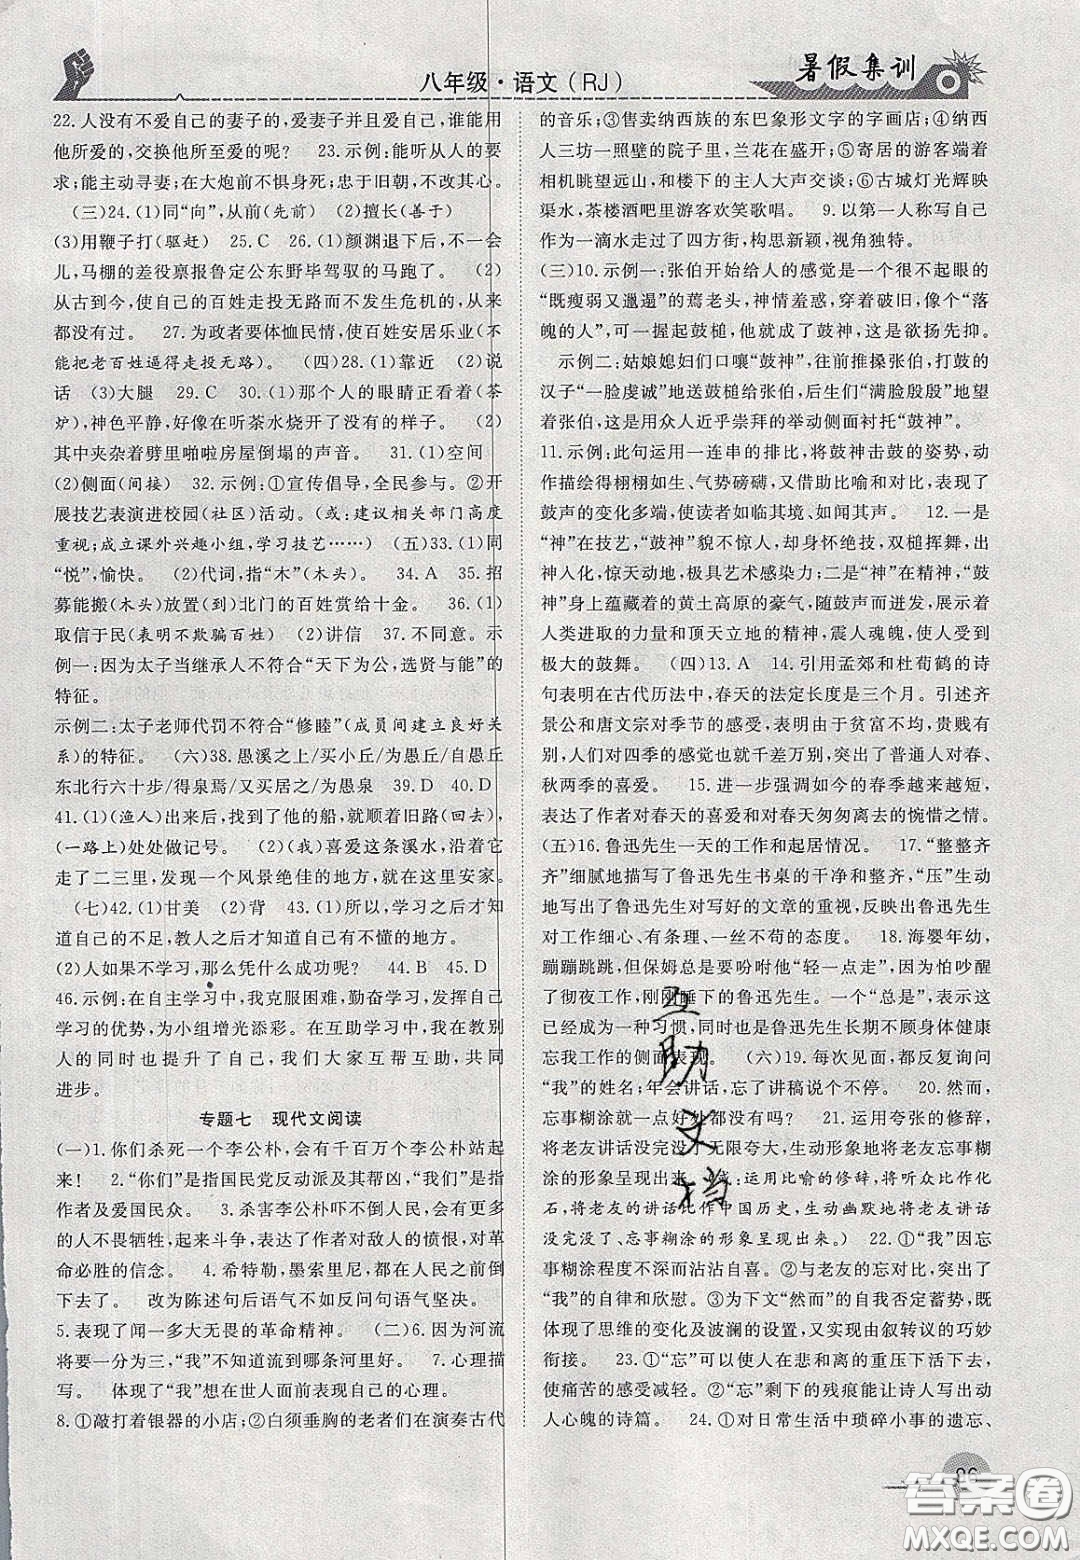 八年级·语文(RJ)
暑假集训
22.人没有不爱自己的妻子的,爱妻子并且爱自己,谁能用
他所爱的,交换他所至爱的呢? 23.示例:能听从人的要
求;能主动寻妻;在大炮前不惧身死;忠于旧朝,不改其心。
(三)24.(1)同“向”,从前(先前) (2)擅长(善于)
(3)用鞭子打(驱赶) 25.C 26.(1)颜渊退下后,不一会
儿,马棚的差役禀报鲁定公东野毕驾驭的马跑了。 (2)
从古到今,使自己的百姓走投无路而不发生危机的,从来
都没有过。 27.为政者要体恤民情,使百姓安居乐业(不
能把老百姓逼得走投无路)。 (四)28.(1)靠近 (2)说
话 (3)大腿 29.C 30.(1)那个人的眼睛正看着(茶
炉),神色平静,好像在听茶水烧开了没有的样子。 (2)
其中夹杂着劈里啪啦房屋倒塌的声音。 31.(1)空间
(2)侧面(间接) 32.示例:①宣传倡导,全民参与。②开
展技艺表演进校园(社区)活动。(或:建议相关部门高度
重视;成立课外兴趣小组,学习技艺……) (五)33.(1)同
“悦”,愉快。 (2)代词,指“木”(木头)。 34.A 35.招
募能搬(木头)放置(到)北门的百姓赏给十金。 36.(1)
取信于民(表明不欺骗百姓) (2)讲信 37.不同意。示
例一:因为太子当继承人不符合“天下为公,选贤与能”的
特征。
示例二:太子老师代罚不符合“修睦”(成员间建立良好关
系)的特征。 (六)38.愚溪之上/买小丘/为愚丘/自愚丘
东北行六十步/得泉焉/又买居之/为愚泉 39.D 40.D
41.(1)(渔人)出来后,找到了他的船,就顺着旧路(回去),
(一路上)处处做记号。 (2)(我)喜爱这条溪水,沿着它
走了二三里,发现一个风景绝佳的地方,就在这里安家。
(七)42.(1)甘美 (2)背 43.(1)所以,学习之后才知
道自己的不足,教人之后才知道自己有不懂的地方。
(2)人如果不学习,那么凭什么成功呢? 44.B 45.D
46.示例:在自主学习中,我克服困难,勤奋学习,发挥自己
学习的优势,为小组增光添彩。在互助学习中,我在教别
人的同时也提升了自己,我们大家互帮互助,共同
进步。
专题七 现代文阅读
(一)1.你们杀死一个李公朴,会有千百万个李公朴站起
来! 2.“你们”是指国民党反动派及其帮凶,“我们”是指
作者及爱国民众。 3.杀害李公朴吓不倒人民,会有更多
的人不畏牺牲,走向斗争,表达了作者对敌人的愤恨和对革
命必胜的信念。 4.希特勒,墨索里尼,不都在人民面前倒
下去了。 改为陈述句后语气不如反问句语气坚决。
5.表现了闻一多大无畏的革命精神。 (二)6.因为河流
将要一分为三,“我”不知道流到哪条河里好。 7.心理描
写。 体现了“我”想在世人面前表现自己的心理。
8.①敲打着银器的小店;②白须垂胸的老者们在演奏古代
的音乐;③售卖纳西族的东巴象形文字的字画店;④纳西
人三坊一照壁的院子里,兰花在盛开;⑤寄居的游客端着
相机眺望远山,和楼下的主人大声交谈;⑥古城灯光辉映
渠水,茶楼酒吧里游客欢笑歌唱。 9.以第一人称写自己
作为一滴水走过了四方街,构思新颖,视角独特。
(三)10.示例一:张伯开始给人的感觉是一个很不起眼的
“既瘦弱又邋遢”的蔫老头,神情羞惑,穿着破旧,像个“落
魄的人”,可一握起鼓槌,他就变成了鼓神,这是欲扬先抑。
示例二:姑娘媳妇们口嚷“鼓神”,往前推搡张伯,打鼓的
汉子“一脸虔诚”地送鼓槌给张伯,后生们“满脸殷殷”地望
着张伯,这是用众人近乎崇拜的举动侧面衬托“鼓神”。
11.示例:此句运用一连串的排比,将鼓神击鼓的姿势、动
作描绘得栩栩如生、气势磅礴,又借助比喻和对比,表现了
鼓声的变化多端,使读者如临其境、如闻其声。 12.一是
“神”在技艺,“鼓神”貌不惊人,却身怀绝技,双槌挥舞,出
神入化,惊天动地,极具艺术感染力;二是“神”在精神,“鼓
神”身上蕴藏着的黄土高原的豪气,随鼓声迸发,展示着
人类进取的力量和顶天立地的精神,震人魂魄,使人受到
极大的鼓舞。 (四)13.A 14.引用孟郊和杜荀鹤的诗
句表明在古代历法中,春天的法定长度是三个月。引述齐
景公和唐文宗对季节的感受,表明由于贫富不均,贵贱有
别,人们对四季的感觉也就千差万别,突出了普通人对春、
秋两季的喜爱。 15.进一步强调如今的春季越来越短,
表达了作者对春天的喜爱和对春天匆匆离去的惋惜之情。
(五)16.鲁迅先生一天的工作和起居情况。 17.“整整齐
齐”细腻地描写了鲁迅先生书桌的干净和整齐,“压”生动
地写出了鲁迅先生对写好的文章的重视,反映出鲁迅先生
对工作细心、有条理、一丝不苟的态度。 18.海婴年幼,
蹦蹦跳跳,但保姆总是要吩咐他“轻一点走”,因为怕吵醒
了彻夜工作,刚刚睡下的鲁迅先生。一个“总是”,表示这
已经成为一种习惯,同时也是鲁迅先生长期不顾身体健康
忘我工作的侧面表现。 (六)19.每次见面,都反复询问
“我”的姓名;年会讲话,忘了讲稿说个不停。 20.然而,
忘事糊涂就一点好处都没有吗? 21.运用夸张的修辞,
将老友讲话没完没了无限夸大,生动形象地将老友忘事糊
涂的形象呈现出来。(或:运用比喻的修辞,将老友比作化
石,将老友的讲话比作中国历史,生动幽默地将老友讲话
没完没了、忘事糊涂的形象呈现出来。) 22.①“我”因忘
事糊涂程度不深而沾沾自喜。②与老友的忘对比,突出了
“我”的自律和欣慰。③为下文“然而”的否定蓄势,既
体现了思维的变化及波澜的设置,又体现由叙转议的巧妙
衔接。 23.①“忘”可以使人在悲和离的重压下活下去,
使痛苦的感受减轻。②“忘”剩下的残痕能让诗人写出动
人心魄的诗篇。 24.①对日常生活中琐碎小事的遗忘、
互助文档
答案圈
MXQE.COM